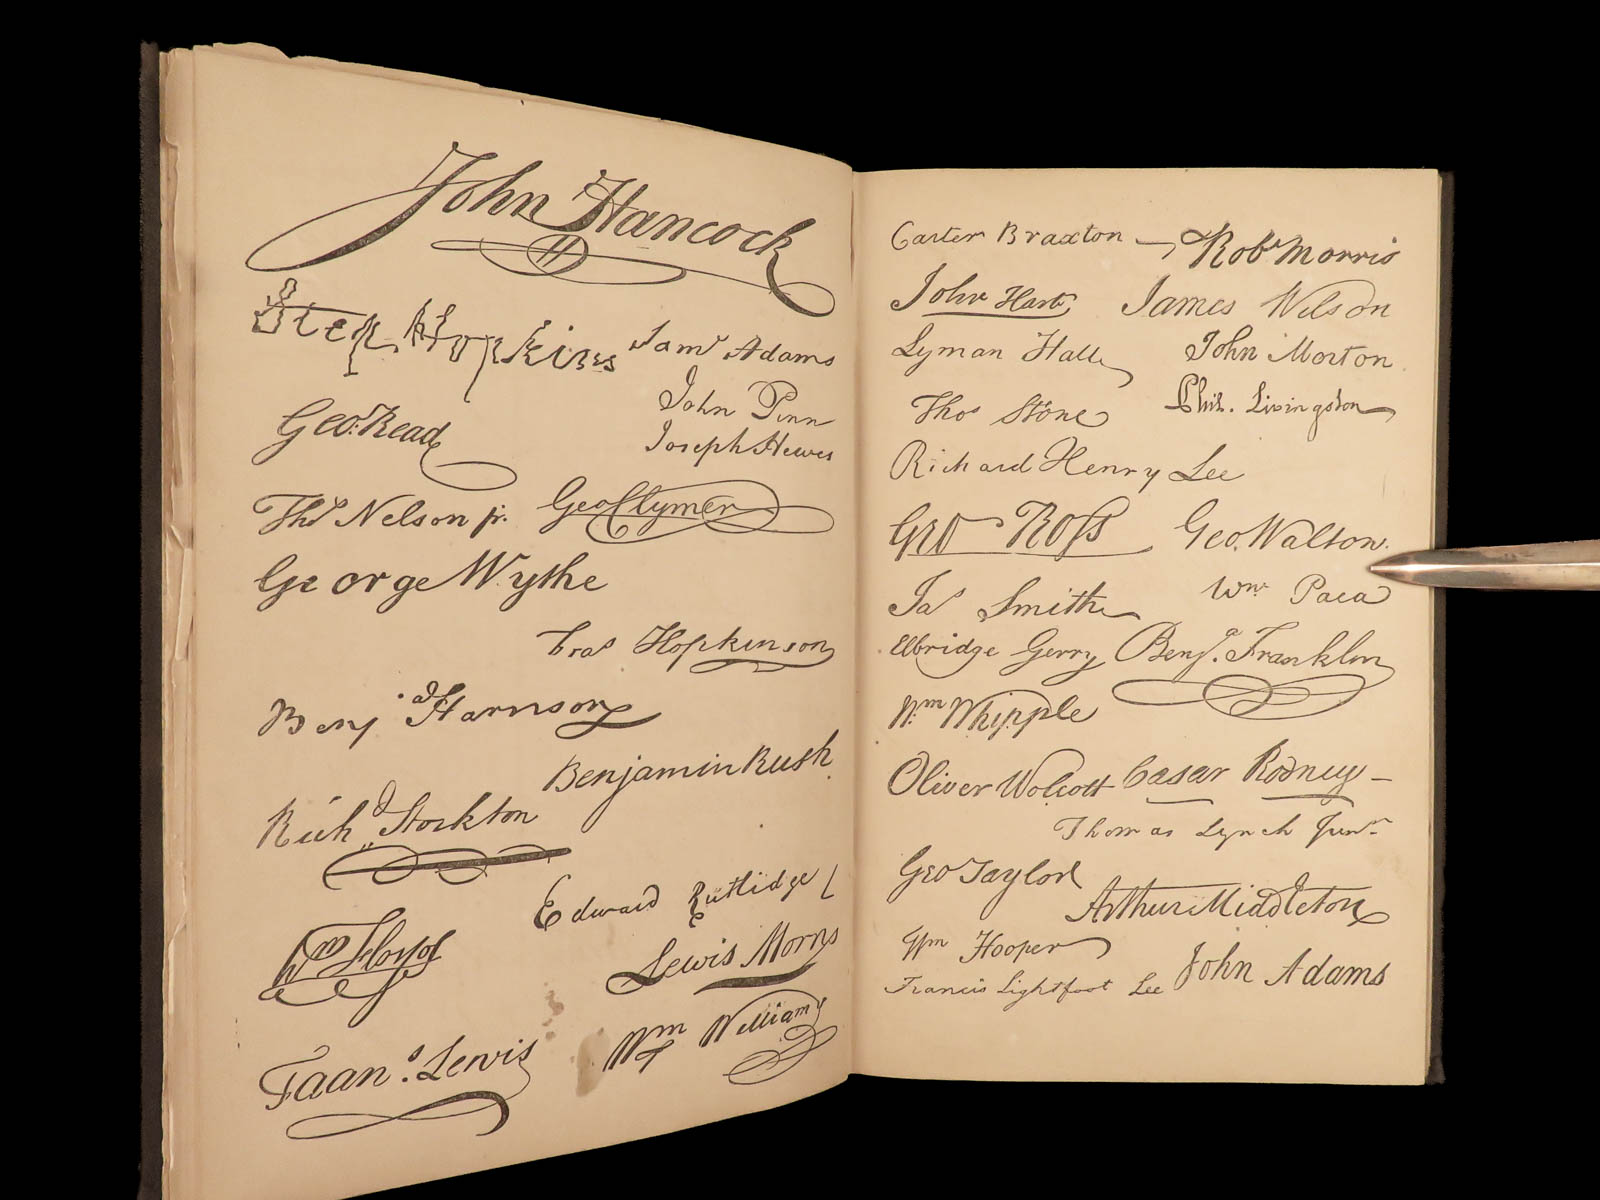 John Hancock
H
Step. Hopkins Saml Adams
John Penn
Geo: Read Joseph Hewes
Thos Nelson jr. Geo Clymer
George Wythe
Fras Hopkinson
Benja Harrison
Benjamin Rush
Richd Stockton
Edward Rutlidge
Wm Floyd Lewis Morris
Wm Williams
Frans. Lewis
Carter Braxton Robt Morris
John Hart James Wilson
Lyman Hall John Morton
Thos Stone Phil. Livingston
Richard Henry Lee
Geo Ross Geo. Walton.
Jas Smith Wm Paca
Elbridge Gerry Benja. Franklin
Wm Whipple
Oliver Wolcott Casar Rodney
Thomas Lynch Junr
Geo Taylor Arthur Middleton
Wm Hooper John Adams
Francis Lightfoot Lee